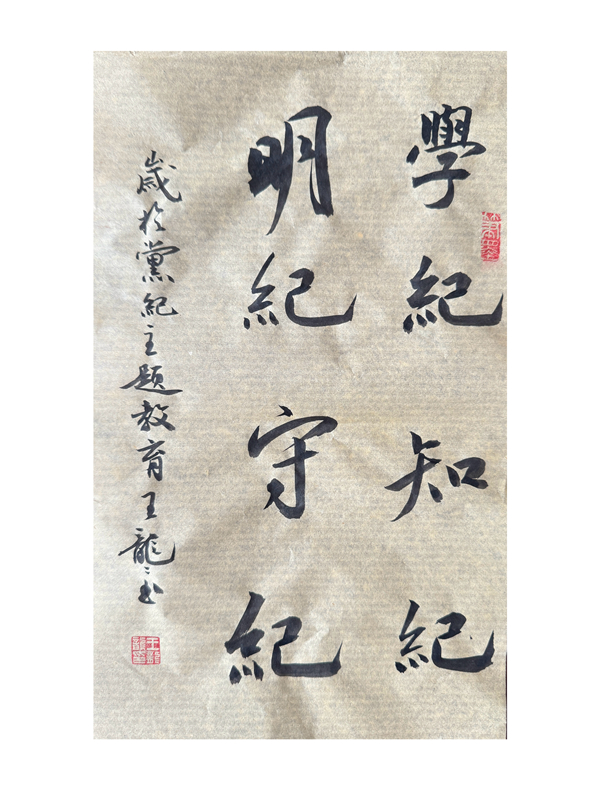 學紀知紀
明紀守紀
歲於黨紀主題教育王龍〻书